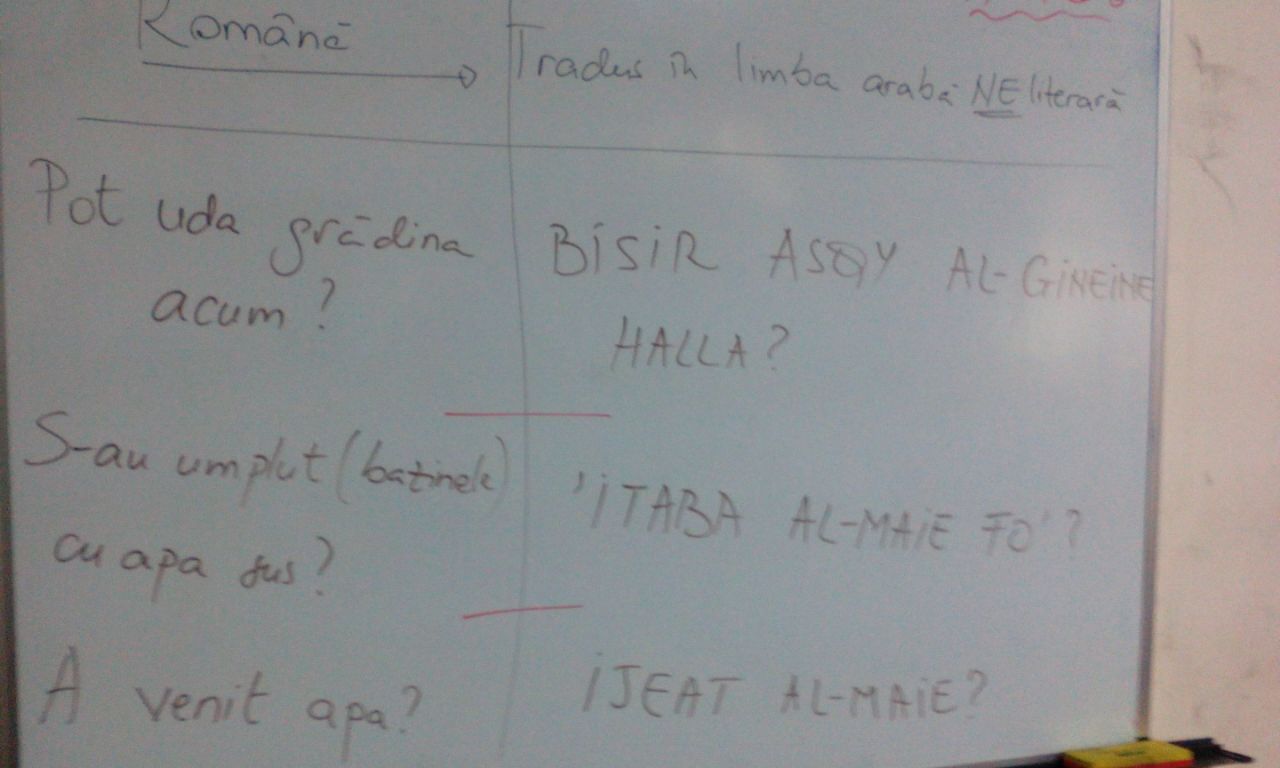 Română
Tradus în limba arabă NEliterară
Pot uda grădina
acum?
BISIR ASQY AL-GINEINE
HALLA?
S-au umplut (bazinele)
cu apa sus?
'ITABA AL-MAIE FO'?
A venit apa?
IJEAT AL-MAIE?